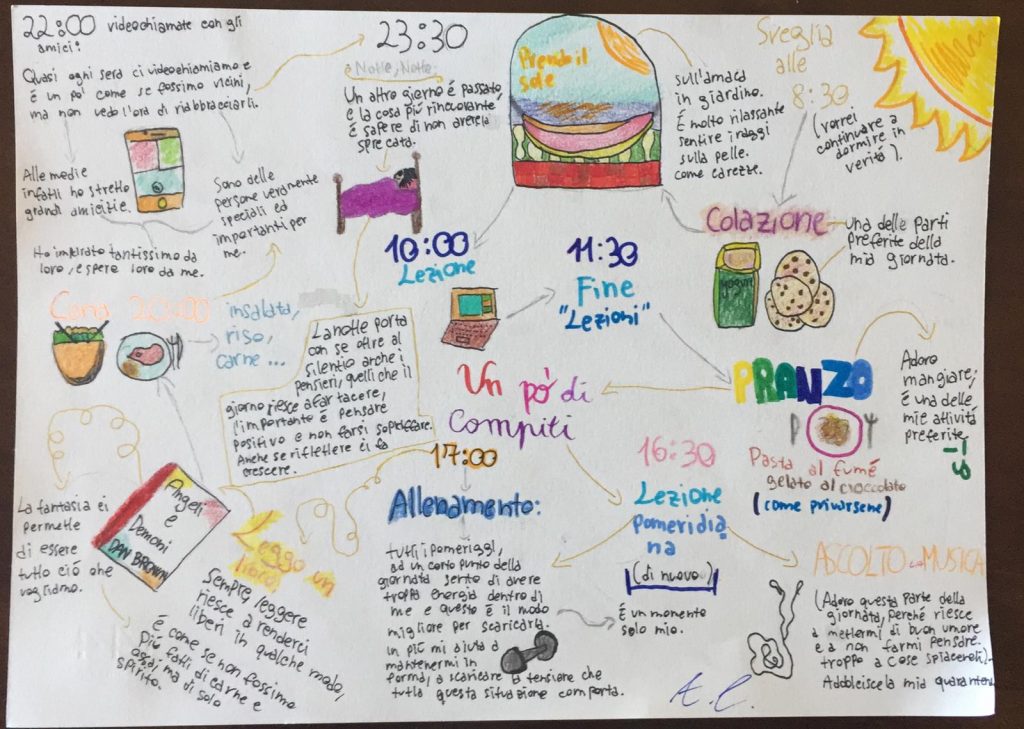 22:00 videochiamate con gli
amici:
Quasi ogni sera ci videochiamiamo e
è un po' come se fossimo vicini,
ma non vedo l'ora di riabbracciarli.
Alle medie
infatti ho stretto
grandi amicitie.
Sono delle
persone veramente
speciali ed
importanti per
me.
Ho imparato tantissimo da
loro, e spero loro da me.
23:30
Notte, Notte
Un altro giorno è passato,
e la cosa più rincuorante
è sapere di non averla
sprecata.
Prendo il
sole
sull'amaca
in giardino.
È molto rilassante
sentire i raggi
sulla pelle.
come carezze.
Sveglia
alle
8:30
(vorrei
continuare a
dormire in
verità).
Colazione
una delle parti
preferite della
mia giornata.
yogurt
10:00
Lezione
11:30
Fine
"Lezioni"
PRANZO
Adoro
mangiare,
è una delle
mie attività
preferite
Pasta al fumé
gelato al cioccolato
(come privarsene)
Cena 20:00
insalata,
riso,
carne...
La notte porta
con se oltre al
silentio anche i
pensieri, quelli che il
giorno riesce a far tacere,
l'importante è pensare
positivo e non farsi sopraffare.
Anche se riflettere ci fa
crescere.
Un pò di
Compiti
17:00
Allenamento:
tutti i pomeriggi,
ad un certo punto della
giornata sento di avere
troppa energia dentro di
me e questo è il modo
migliore per scaricarla.
in più mi aiuta a
mantenermi in
forma, a scaricare la tensione che
tutta questa situazione comporta.
È un momento
solo mio.
16:30
Lezione
pomeridia
na
(di nuovo)
ASCOLTO MUSICA
(Adoro questa parte della
giornata, perché riesce
a mettermi di buon umore
e a non farmi pensare
troppo a cose spiacevoli).
Addolcisce la mia
Leggo un
libro
Angeli
e
Demoni
DAN BROWN
La fantasia ci
permette
di essere
tutto ciò che
vogliamo.
Sempre, leggere
riesce a renderci
liberi in qualche modo,
è come se non fossimo
più fatti di carne e
ossa, ma di solo
spirito.
A.C.